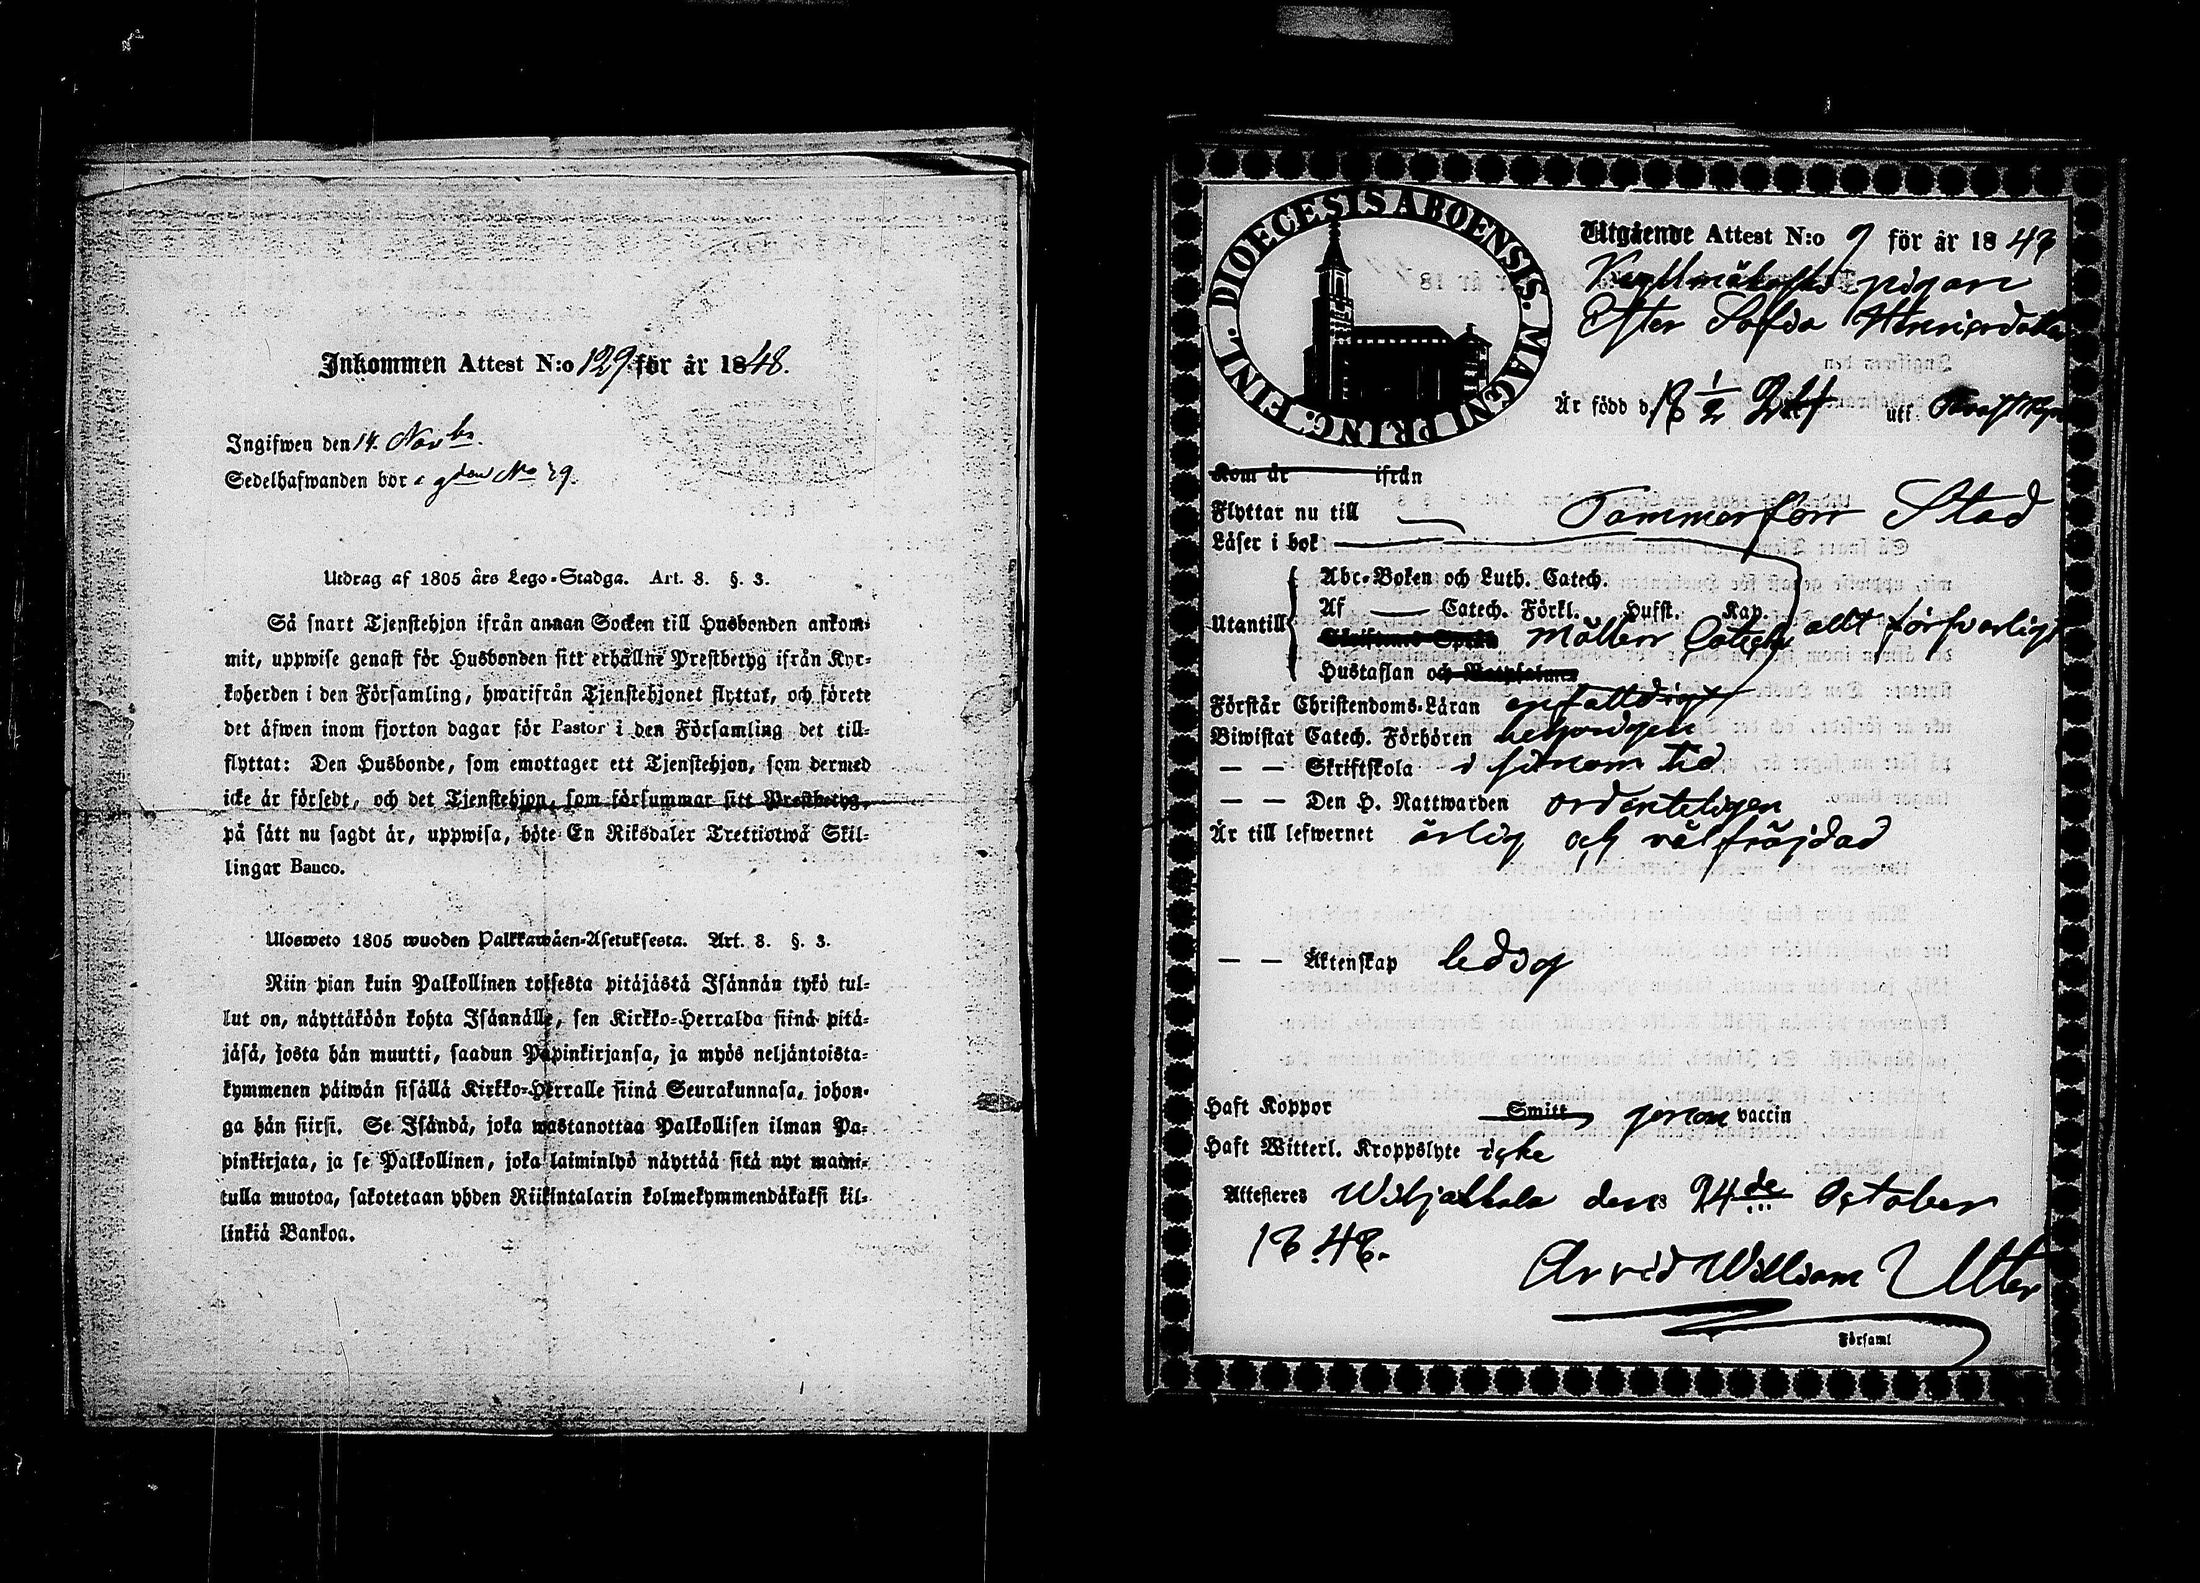 Inkommen Attest N:o 129 för år 1848.
Ingifwen den 14. Novbr.
Sedelhafwanden bor i gden No 29.
Utdrag af 1805 års Lego-Stadga. Art. 8. §. 3.
Så snart Tjenstehjon ifrån annan Socken till Husbonden ankom-
mit, uppwise genast för Husbonden sitt erhållne Prestbetyg ifrån Kyr-
koherden i den Församling, hwarifrån Tjenstehjonet flyttat, och förete
det äfwen inom fjorton dagar för Pastor i den Församling det till-
flyttat: Den Husbonde, som emottager ett Tjenstehjon, som dermed
icke är försedt, och det Tjenstehjon, som försummar sitt Prestbetyg,
på sätt nu sagdt är, uppwisa, böte En Riksdaler Trettiotwå Skil-
lingar Banco.
Ulosweto 1805 wuoden Palkkawäen-Asetuksesta. Art. 8. §. 3.
Niin pian kuin Palkollinen toisesta pitäjästä Isännän tykö tul-
lut on, näyttäköön kohta Isännälle, sen Kirkko-Herralda siinä pitä-
jäsä, josta hän muutti, saadun Papinkirjansa, ja myös neljäntoista-
kymmenen päiwän sisällä Kirkko-Herralle siinä Seurakunnasa, johon-
ga hän siirsi. Se Isändä, joka wastanottaa Palkollisen ilman Pa-
pinkirjata, ja se Palkollinen, joka laiminlyö näyttää sitä nyt maini-
tulla muotoa, sakotetaan yhden Riikintalarin kolmekymmendäkaksi kil-
linkiä Bankoa.
DIOECESIS ABOENSIS. MAGNI PRINC. FINL.
Utgående Attest N:o 9 för år 1848
pigan
Ester Sofia Henricsdotter
Är född d. 18 1/2 24 uti
Kom år ifrån
Flyttar nu till Tammerfors Stad
Läser i bok
Utantill
Abc-Boken och Luth. Catech.
Af Catech. Förkl. Hufst. Kap.
Skriftenes Språk Möllers Catech allt försvarligt
Hustaflan och Botpsalmer
Förstår Christendoms-Läran enfaldigt
Biwistat Catech. Förhören behörigen
— — Skriftskola i sinom tid
— — Den H. Nattwarden ordenteligen
Är till lefwernet ärlig och välfräjdad
— — Äktenskap ledig
Haft Koppor Smitt genom vaccin
Haft Witterl. Kroppslyte icke
Attesteres Wiljakkala den 24de October
1848.
Arvid William Utter
Församl